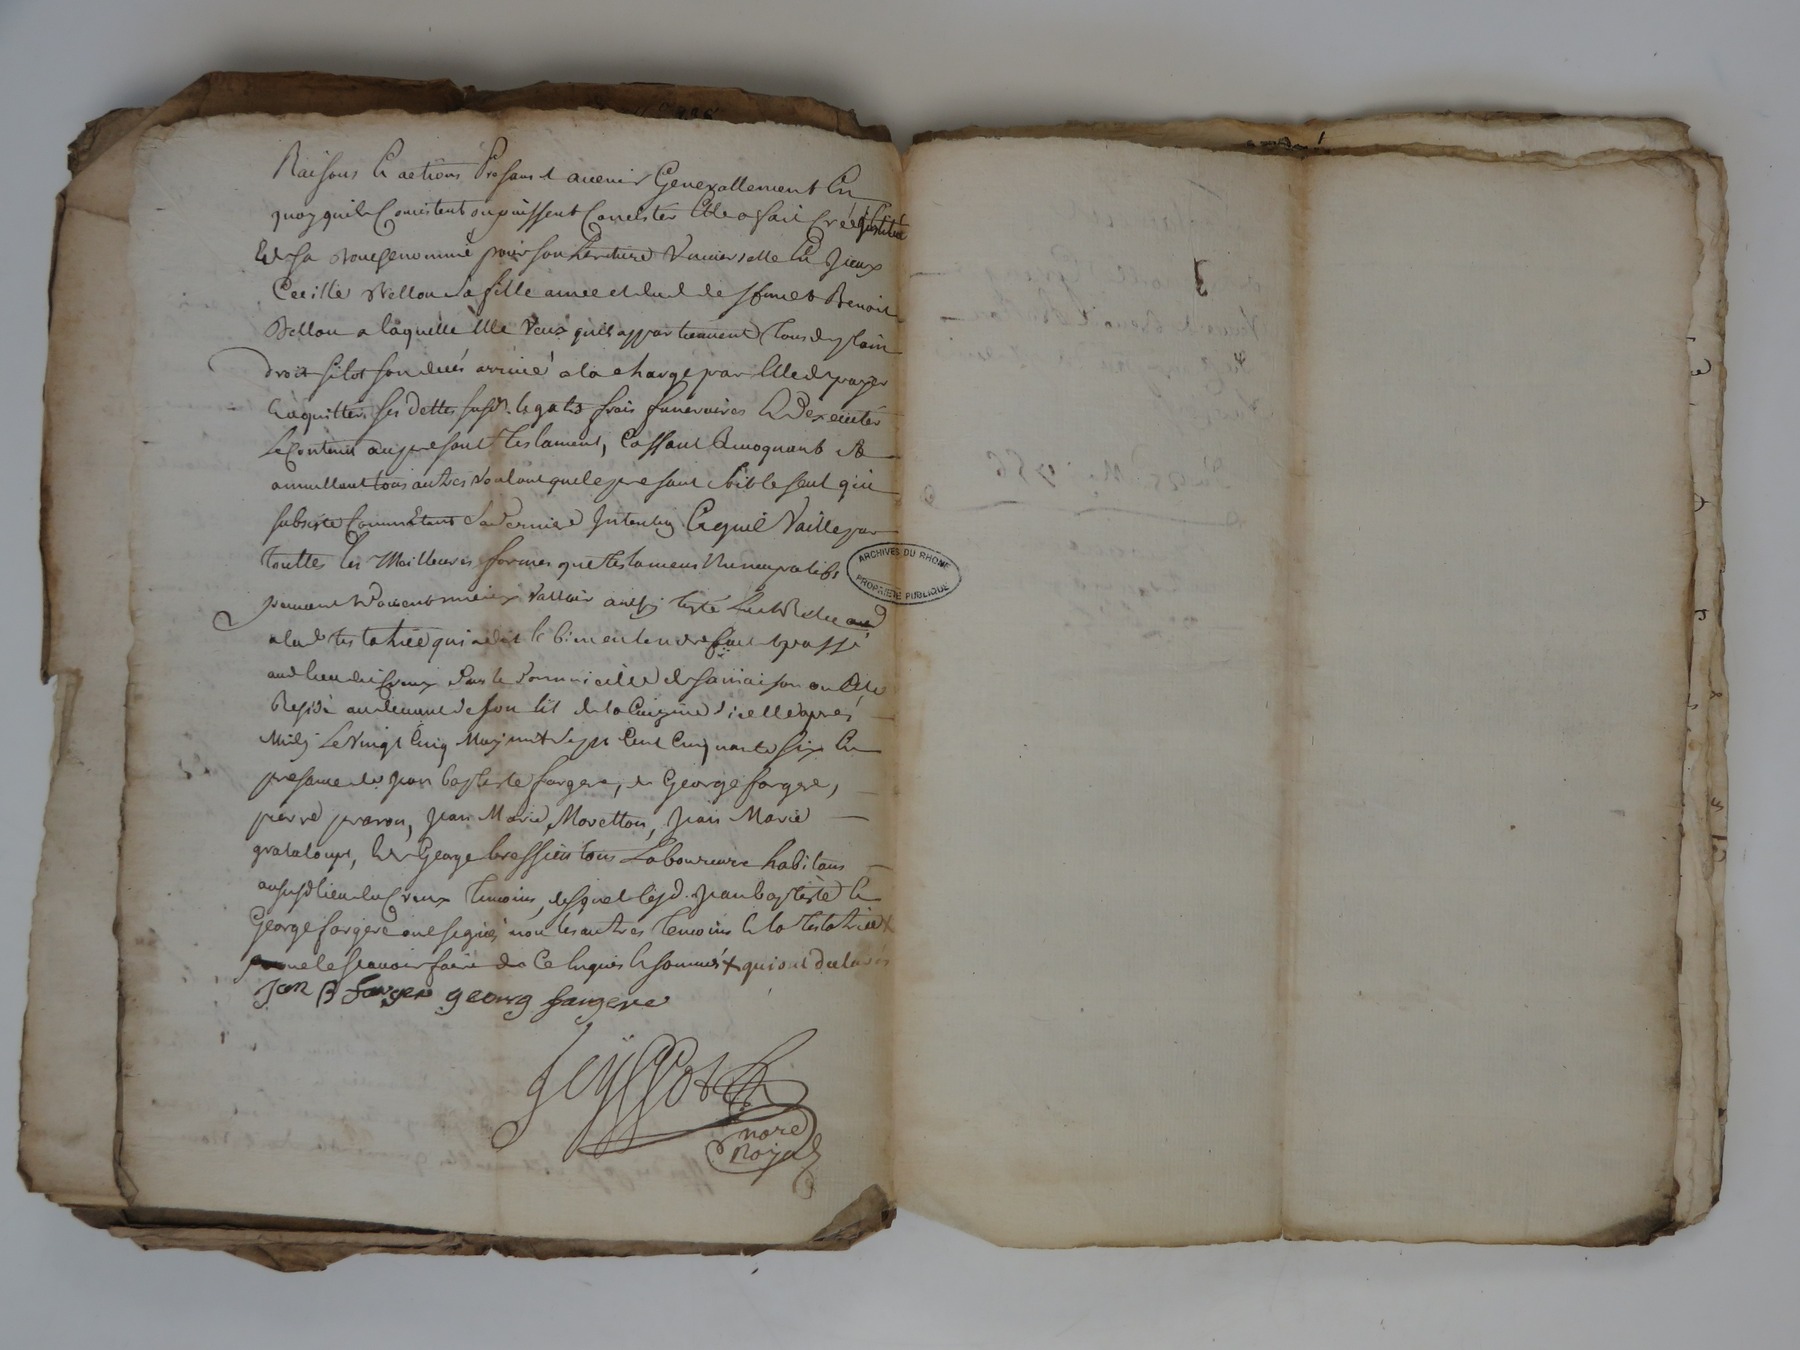 Raisons & actions Presans & avenir Generallement En
quoy quils Consistent ou puissent Consister Elle a fait créé institué
Et sa bouche nommé pour son heritiere Universelle
Cecille Bellon sa fille amee et dud deffunct Benoit
Bellon a laquelle Elle veux quils appartiennent tous de plain
droit sitot son deces arrivé a la charge par Elle de payer
& aquitter ses dettes susd. legats frais funeraires & Dexecuter
Le Contenu au present testament, Cassant Revoquant &
annullant tous autres voulant que le present soit le seul qui
subsiste Comme Etant sa derniere Intention & quil Vaille par
touttes les Meilleures formes que testamens Nuncupatifs
peuvent & doivent mieux valloir ainsi testé Leu & Relu
a lad testatrice qui a dit le bien entendre fait & passé
aud lieu du Creux Dans le Domicille & sa maison ou Elle
Reside au devant de son lit de la Cuizine dicelle apres
Midy Le Vingt Cinq May mil Sept Cent Cinquante Six En
presance de Jean baptiste fargere, & George fargere,
pierre praron, Jean Marie Moretton, Jean Marie
grataloup, & George bressieu tous Laboureurs habitans
aususd lieu du Creux temoins, desquels lesd. Jean baptiste &
George fargere ont signés non les autres temoins & la testatrice +
pour ne le scavoir faire de Ce Enquis & sommés + qui ont declarés
Jan B farger georg fargere
nore
Royal
ARCHIVES DU RHONE
PROPRIETE PUBLIQUE